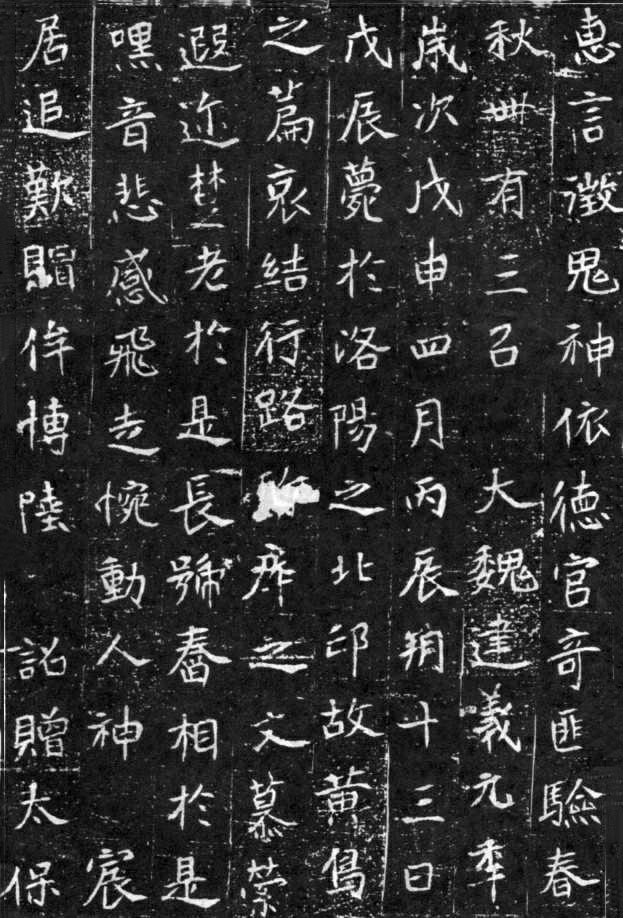 惠言徵鬼神依德官奇匪驗春
秋卌有三以大魏建義元季
歲次戊申四月丙辰朔十三日
戊辰薨於洛陽之北邙故黃鳥
之篇哀結行路之文慕縈
遐迩楚老於是長號舂相於是
嘿音悲感飛走惋動人神宸
居追歎賵侔博陸詔贈太保